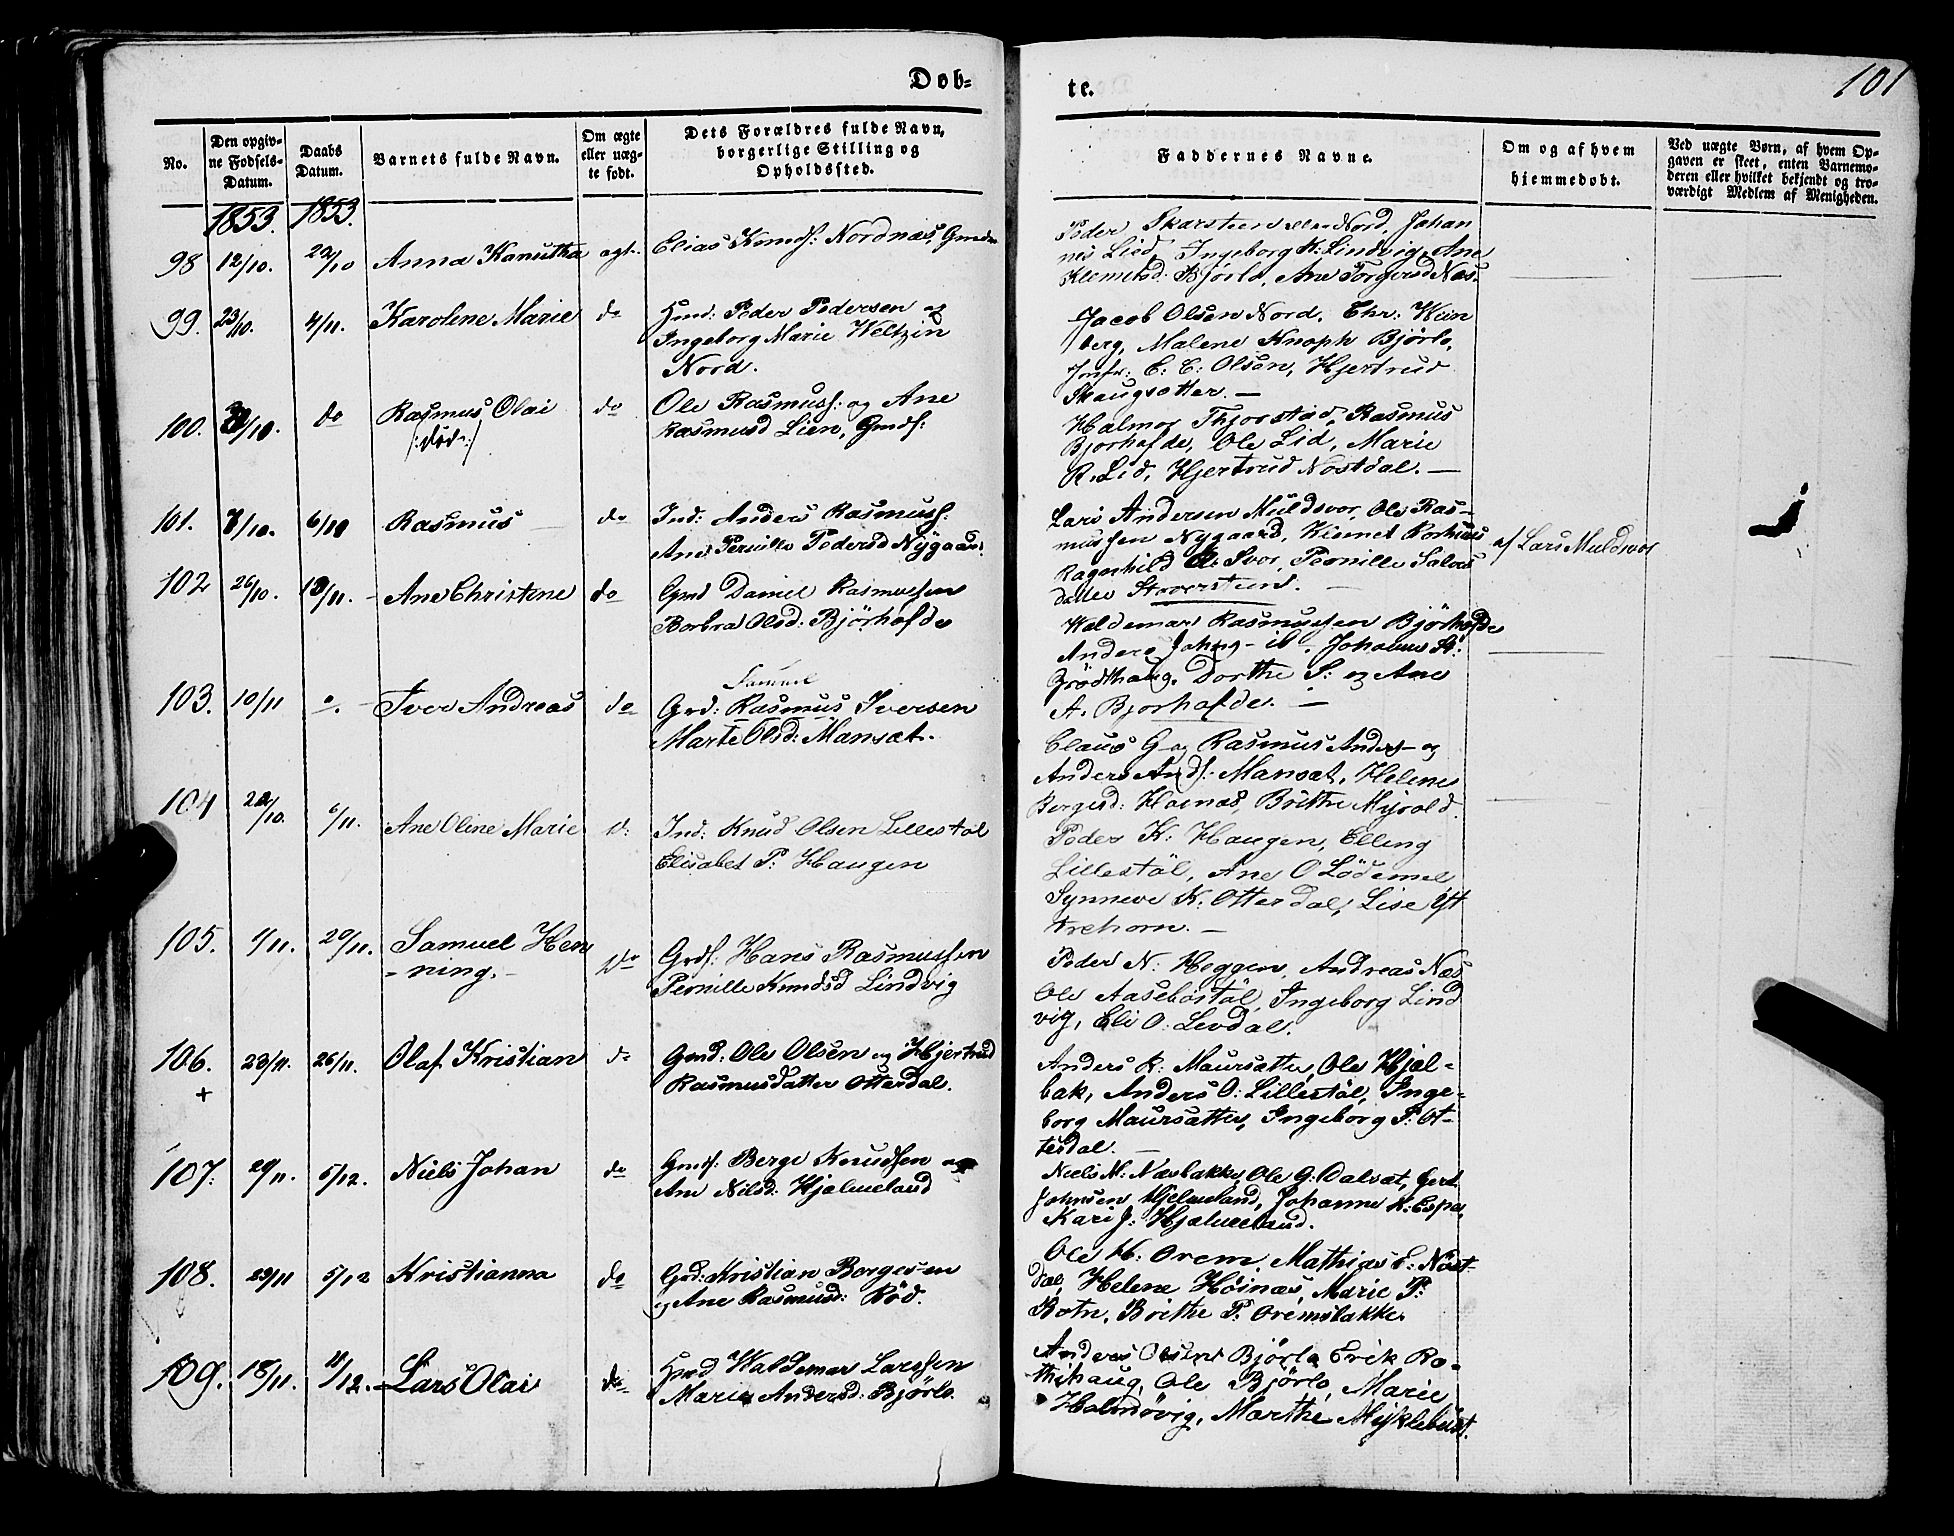 Døb-
te.
101
No.
Den opgiv-
ne Fødsels-
Datum.
Daabs
Datum.
Barnets fulde Navn.
Om ægte
eller uæg-
te født.
Dets Forældres fulde Navn,
borgerlige Stilling og
Opholdssted.
Faddernes Navne.
Om og af hvem
hjemmedøbt.
Ved uægte Børn, af hvem Op-
gaven er skeet, enten Barnemo-
deren eller hvilket bekjendt og tro-
værdigt Medlem af Menigheden.
1853. 1853.
98 12/10. Anna Kanutha ægt. Elias Knuds: Nordnæs,
Peder Nord, Johan
nes Lied, Ingeborg K: Lindvig, Ane
Klemetsd: Bjørlo, Ane Torgersd Næs.
99. 23/10. 4/11. Karolene Marie do
Hmd: Peder Pedersen og
Ingeborg Marie Weltzin
Nord.
Jacob Olsen Nord, Chr: Wein
berg, Malene Knoph Bjørlo,
Jonfr: E: E: Olsen, Hjertrud
Skaugsætter. —
100. do Rasmus Olai do
/:død:/
Ole Rasmuss: og Ane
Rasmusd Lien, Gmds:
Halmor Thjorstad, Rasmus
Bjorhofde, Ole Lid, Marie
R. Lid, Hjertrud Nostdal. —
101. 7/10. Rasmus do
Ind: Anders Rasmuss:
Ane Pernille Pedersd Nygaard.
Lars Andersen Muldsvor, Ole Ras-
mussen Nygaard, Klemet
Ragnhild Svor, Pernille
datter
af Lars Muldsvor
102 26/10. Ane Christene do
Gmd Daniel Rasmussen
Barbra Olsd: Bjørhofde
Waldemar Rasmussen Bjørhofde
Anders ib. Johannes
Grodthaug, Dorthe S: og Ane
A. Bjorhofde. —
103. 10/11 Iver Andreas do
Samuel
Grd: Rasmus Iversen
Marte Olsd: Mansæt.
Claus G og Rasmus Anders og
Anders Ands: Mansæt, Helene
Bergesd: Hoinæs, Brithe Myrold.
104 6/11. Ane Oline Marie d:
Ind: Knud Olsen Lillestøl
Elisabet P: Haugen
Peder K: Haugen, Elling
Lillestøl, Ane O Lødemel
Synneve K: Otterdal, Lise
105. 9/11. 20/11. Samuel Hen
-ning. - Do
Grds: Hans Rasmussen
Pernille Knudsd Lindvig
Peder N: Heggen, Andreas Næs
Ole Aasebøstøl, Ingeborg Lind
vig, Eli O: Levdal.
106. 23/11. 26/11. Olaf Kristian do
+
Gmd: Ole Olsen og Hjertrud
Rasmusdatter Otterdal.
Anders R: Maursætter, Ole Hjæl-
bak, Anders O: Lillestøl, Inge-
borg Maursætter, Ingeborg P: Ot-
terdal. —
107. 29/11. 5/12. Niels Johan do
Gmds: Berge Knudsen og
Ane Nilsd: Hjelmeland
Niels M: Næsbakke, Ole G: Dalsæt, Gert
Johnsen Hjelmeland, Johanne R: Espe,
Kari J: Hjelmeland.
108. 29/11 5/12 Kristianna do
Grd: Kristian Bergesen
og Ane Rasmusd: Rød.
Ole H: Orem, Mathias E: Nøst-
dal, Helene Høinæs, Marie P:
Botn, Brithe P: Oremsbakke.
109. 18/11. 11/12. Lars Olai do
Hmd Waldemar Larssen
Marie Andersd: Bjørlo.
Anders Olsen Bjørlo, Erik Ro-
thihaug, Ole Bjørlo, Marie
Halmøvig, Marthe Myklebust.